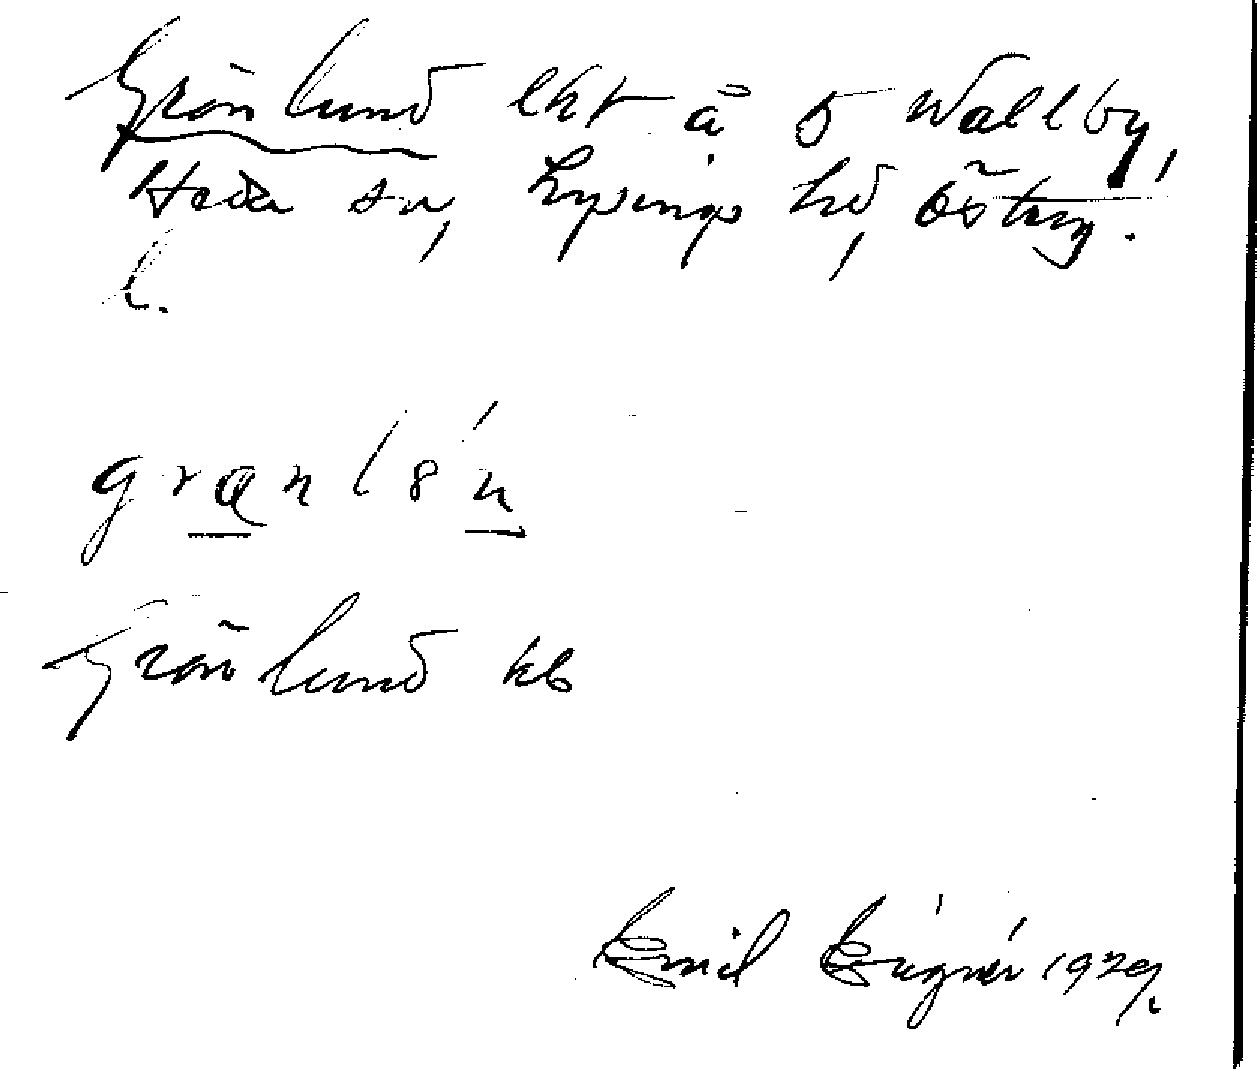 Grönlund lht å ö Wallby,
Heda sn, Lysings hd, Östrg.
l.
granlön
Grönlund kb
Emil 1929.